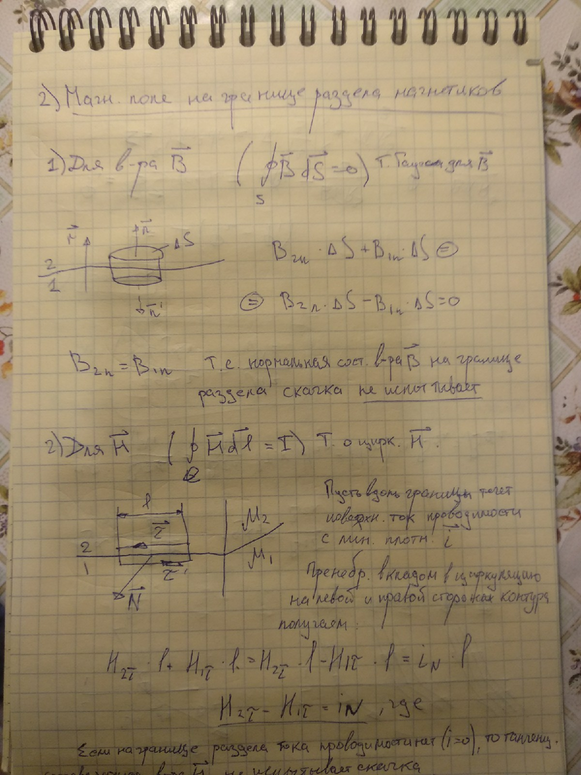 2) Магн. поле на границе раздела магнетиков
1) Для в-ра B⃗ ( ∮ B⃗ dS⃗ = 0 ) Т. Гаусса для B⃗
S
n⃗
n⃗
ΔS
2
1
n⃗'
B₂ₙ · ΔS + B₁ₙ' · ΔS =
= B₂ₙ · ΔS − B₁ₙ · ΔS = 0
B₂ₙ = B₁ₙ Т.е. нормальная сост. в-ра B⃗ на границе
раздела скачка не испытывает
2) Для H⃗ ( ∮ H⃗ dl⃗ = I ) Т. о цирк. H⃗.
l
τ⃗
μ₂
2
1
μ₁
τ⃗'
N⃗
Пусть вдоль границы течет
поверхн. ток проводимости
с лин. плотн. i⃗
Пренебр. вкладом в циркуляцию
на левой и правой сторонах контура
получаем:
H₂τ · l + H₁τ · l = H₂τ · l − H₁τ · l = i_N · l
H₂τ − H₁τ = i_N , где
Если на границе раздела тока проводимости нет (i=0), то тангенц.
в-ра H⃗ не испытывает скачка